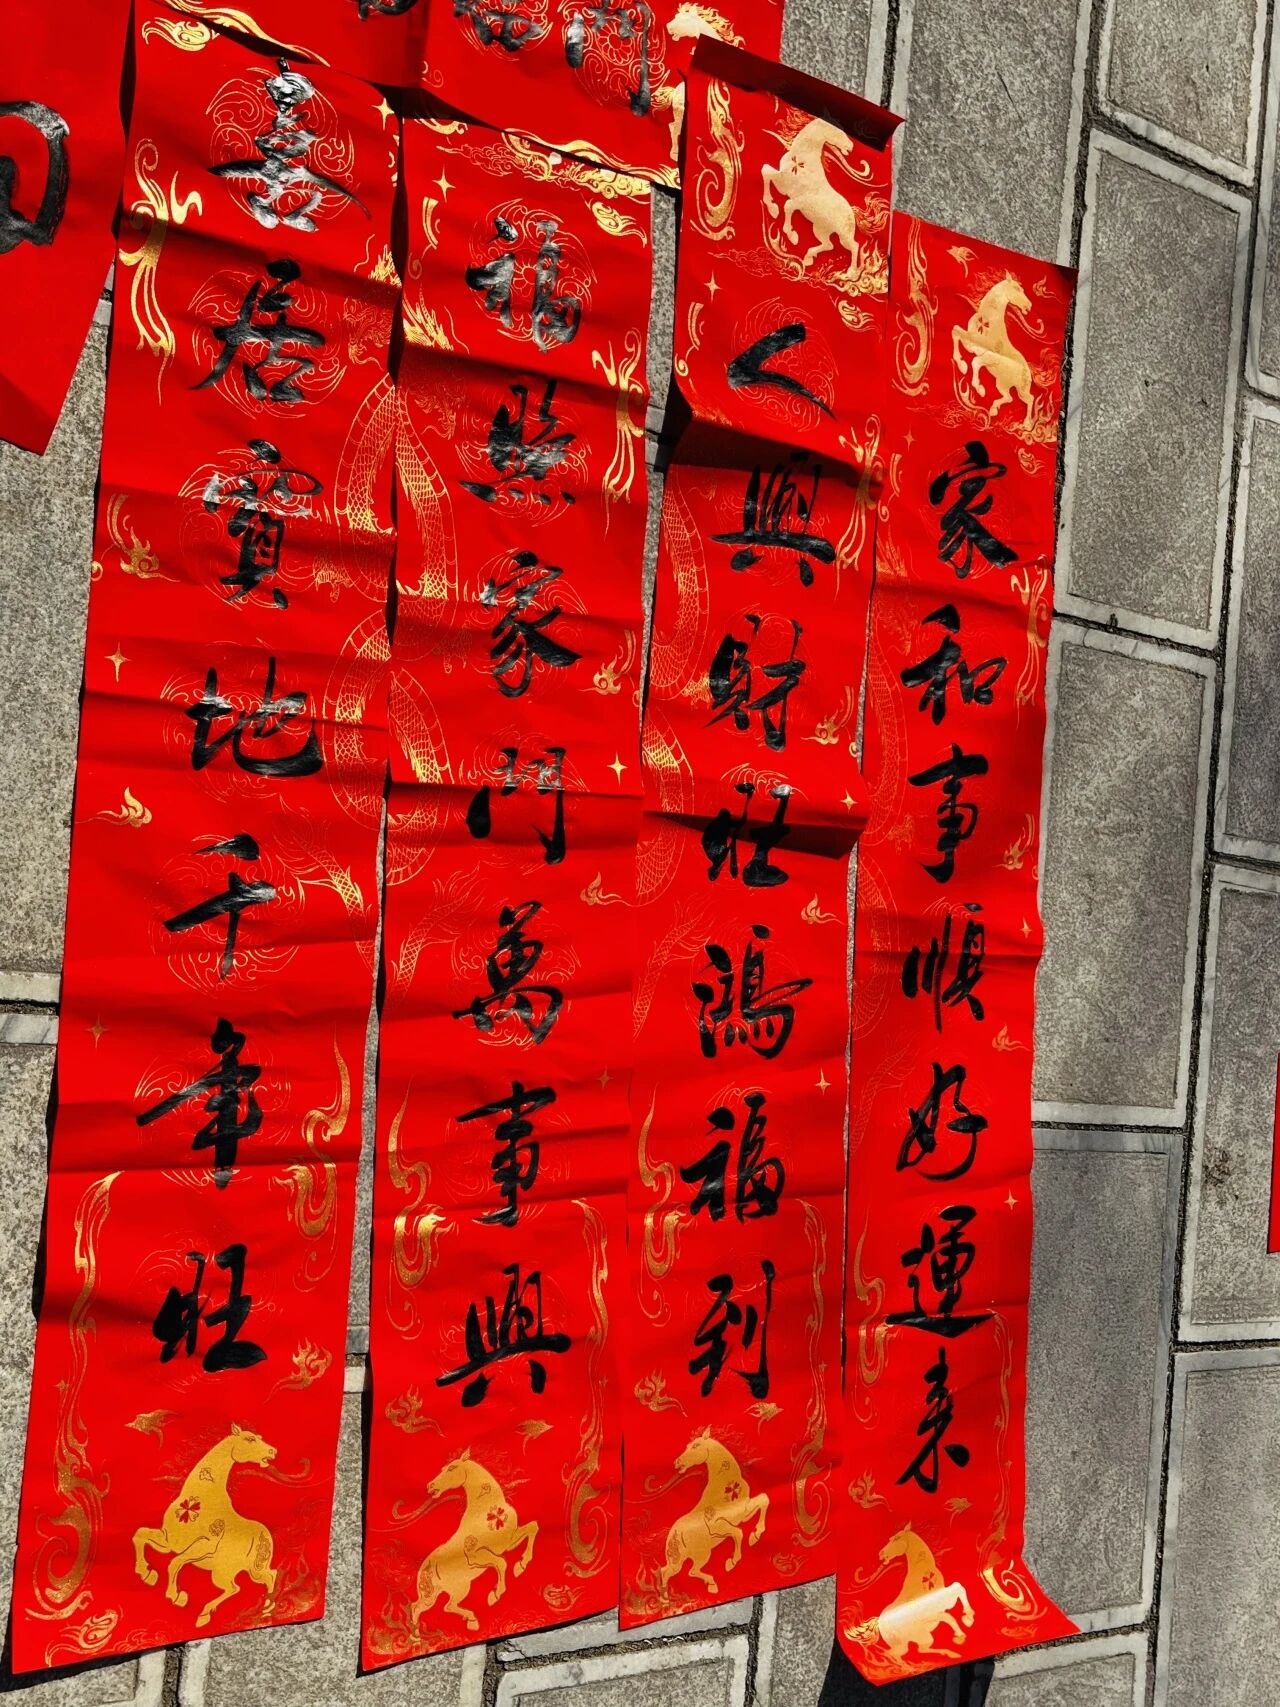 家和事順好運來
人興財旺鴻福到
福照家門萬事興
喜居寶地千年旺
福門